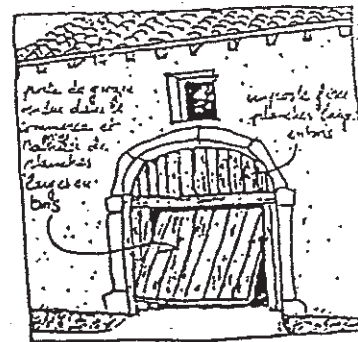 porte de garage
vendue dans le
commerce et
planches
larges en
bois
imposte fixe
planches larges
en bois